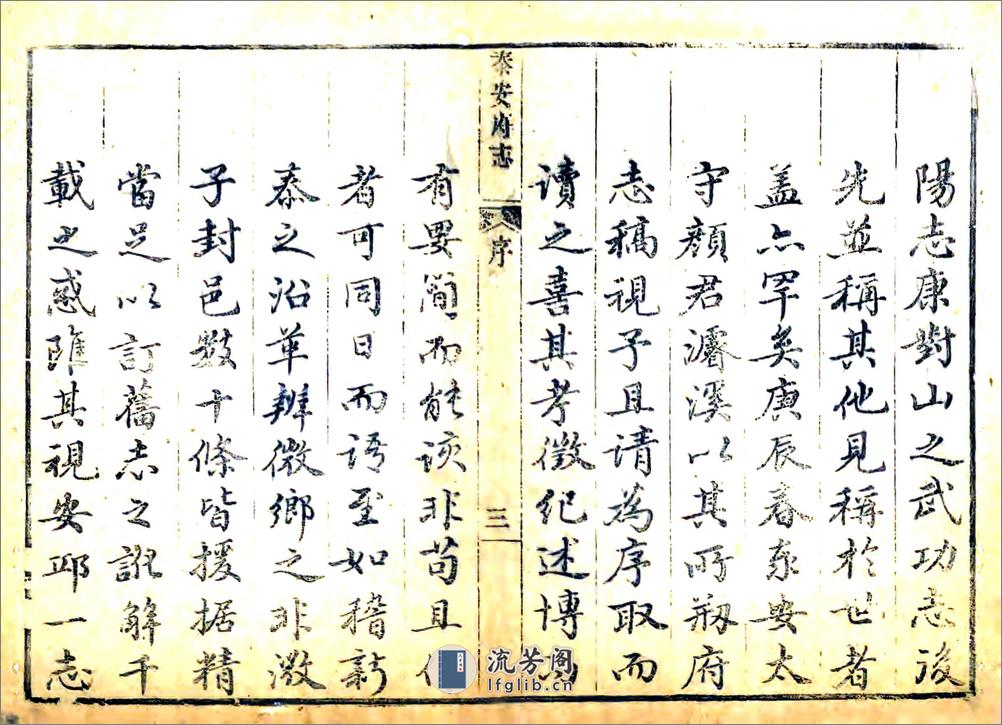 陽志康對山之武功志後
先並稱其他見稱於世者
盖亦罕矣庚辰春泰安太
守顏君濬溪以其所刱府
志稿視予且请為序取而
讀之喜其考徵纪述博
泰安府志
序
三
有要簡而能该非苟且
者可同日而语至如稽新
泰之沿革辨微鄉之非
子封邑数十條皆援据精
當足以訂舊志之訛解千
載之惑雖其視安邱一志
流芳阁
lfglib.cn